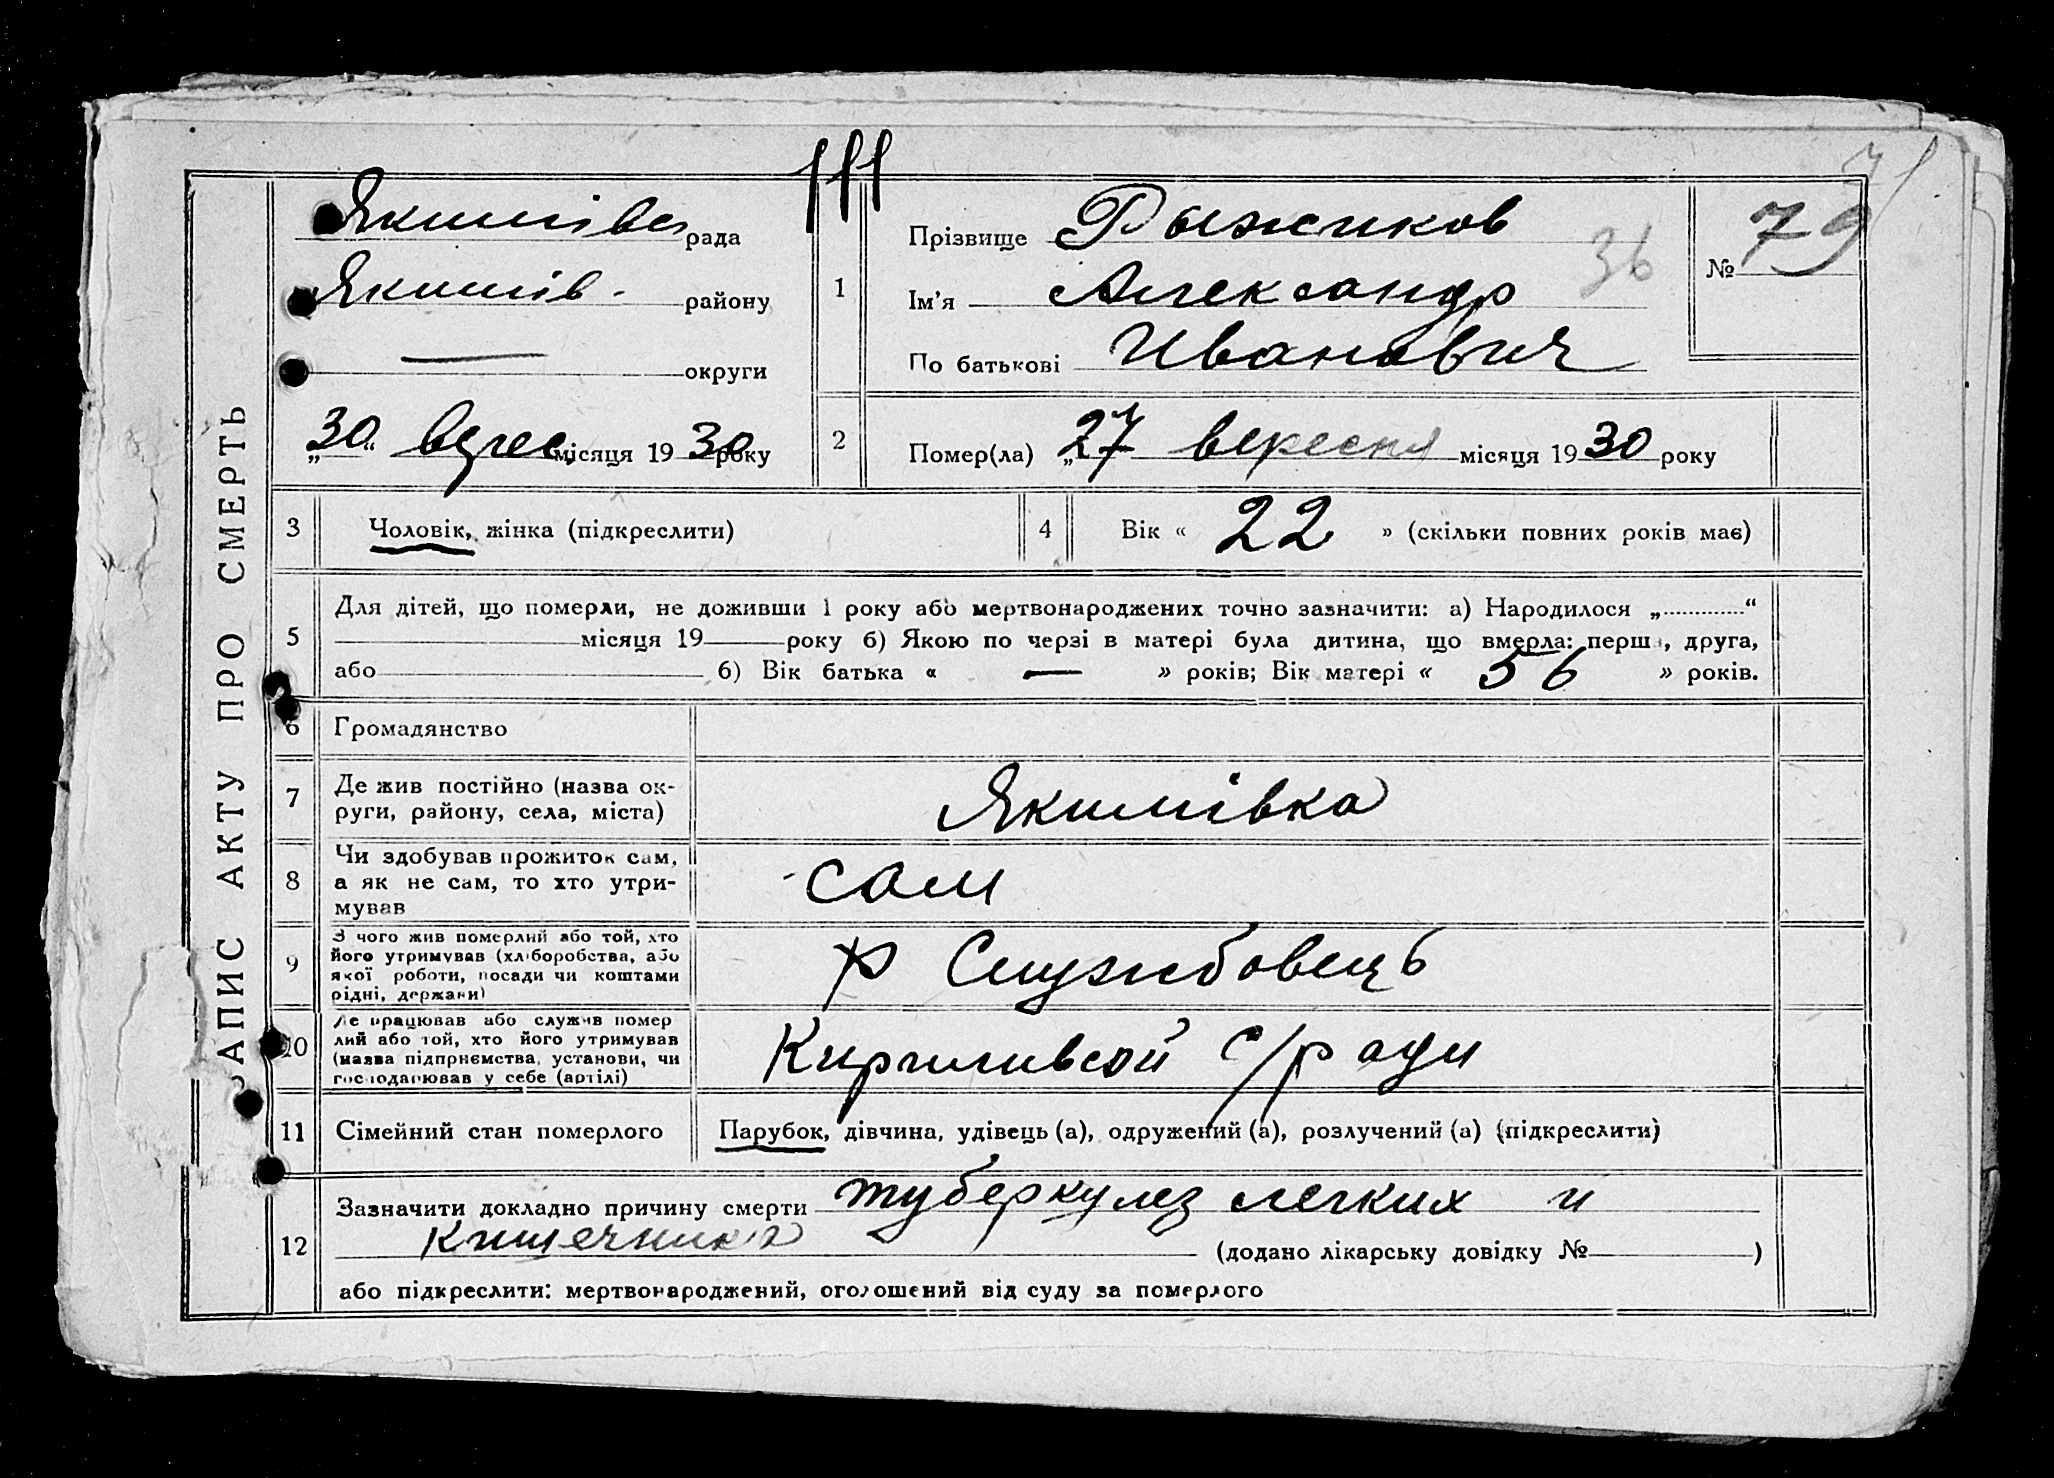 ЗАПИС АКТУ ПРО СМЕРТЬ
71
Якимівсь рада
Якимів. району
— округи
„30“ верес місяця 1930 року
1
Прізвище Рыжиков
36
Ім’я Александр
По батькові Иванович
№ 79
2
Помер(ла) „27 вересня місяця 1930 року
3 Чоловік, жінка (підкреслити)
4 Вік « 22 » (скільки повних років має)
5
Для дітей, що померли, не доживши 1 року або мертвонароджених точно зазначити: а) Народилося „ “
місяця 19 року б) Якою по черзі в матері була дитина, що вмерла: перша, друга,
або б) Вік батька « — » років; Вік матері « 56 » років.
6 Громадянство
7
Де жив постійно (назва ок-
руги, району, села, міста)
Якимівка
8
Чи здобував прожиток сам,
а як не сам, то хто утри-
мував
сам
9
З чого жив померлий або той, хто
його утримував (хліборобства, або
якої роботи, посади чи коштами
рідні, держави)
Р Службовець
10
Де працював або служив помер
лий або той, хто його утримував
(назва підприємства, установи, чи
господарював у себе (артілі)
Кириливсой с/ради
11 Сімейний стан померлого
Парубок, дівчина, удівець (а), одружений (а), розлучений (а) (підкреслити)
12
Зазначити докладно причину смерти туберкулез легких и
кишечника (додано лікарську довідку № )
або підкреслити: мертвонароджений, оголошений від суду за померлого